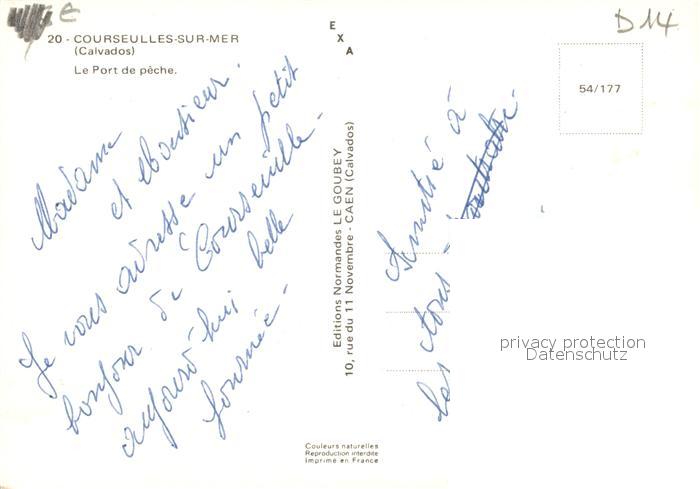 E
D14
20.- COURSEULLES-SUR-MER
(Calvados)
Le Port de pêche.
E
X
A
54/177
Madame
et Monsieur.
Je vous adresse un petit
bonjour de Courseulle.
aujourd'hui belle
journée.
Editions Normandes LE GOUBEY
10, rue du 11 Novembre - CAEN (Calvados)
Amitié à
tous
privacy protection
Datenschutz
Couleurs naturelles
Reproduction interdite
Imprimé en France